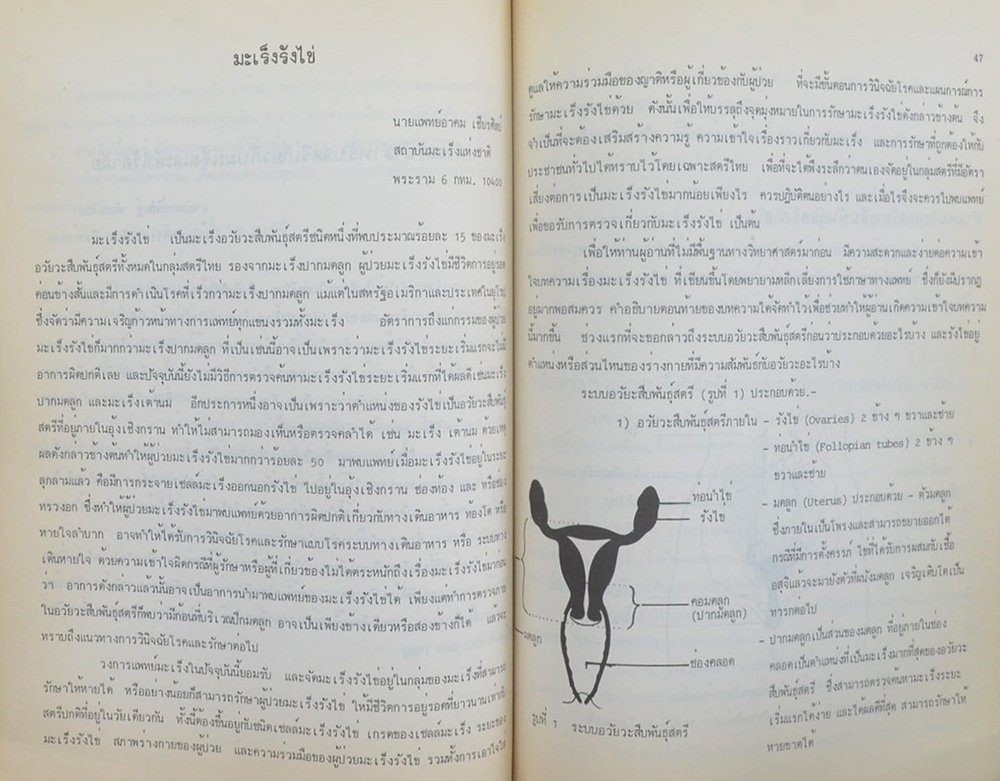 มะเร็งรังไข่
นายแพทย์อาคม เชียรศิลป์
สถาบันมะเร็งแห่งชาติ
พระราม 6 กทม. 10400
มะเร็งรังไข่ เป็นมะเร็งอวัยวะสืบพันธุ์สตรีชนิดหนึ่งที่พบประมาณร้อยละ 15 ของมะเร็ง
อวัยวะสืบพันธุ์สตรีทั้งหมดในกลุ่มสตรีไทย รองจากมะเร็งปากมดลูก ผู้ป่วยมะเร็งรังไข่มีชีวิตการอยู่รอด
ค่อนข้างสั้นและมีการดำเนินโรคที่เร็วกว่ามะเร็งปากมดลูก แม้แต่ในสหรัฐอเมริกาและประเทศในยุโรป
ซึ่งจัดว่ามีความเจริญก้าวหน้าทางการแพทย์ทุกแขนงรวมทั้งมะเร็ง อัตราการถึงแก่กรรมของผู้ป่วย
มะเร็งรังไข่ก็มากกว่ามะเร็งปากมดลูก ที่เป็นเช่นนี้อาจเป็นเพราะว่ามะเร็งรังไข่ระยะเริ่มแรกจะไม่มี
อาการผิดปกติเลย และปัจจุบันนี้ยังไม่มีวิธีการตรวจค้นหามะเร็งรังไข่ระยะเริ่มแรกที่ได้ผลดีเช่นมะเร็ง
ปากมดลูก และมะเร็งเต้านม อีกประการหนึ่งอาจเป็นเพราะว่าตำแหน่งของรังไข่เป็นอวัยวะสืบพันธุ์
สตรีที่อยู่ภายในอุ้งเชิงกราน ทำให้ไม่สามารถมองเห็นหรือตรวจคลำได้ เช่น มะเร็ง เต้านม ด้วยเหตุ
ผลดังกล่าวข้างต้นทำให้ผู้ป่วยมะเร็งรังไข่มากกว่าร้อยละ 50 มาพบแพทย์เมื่อมะเร็งรังไข่อยู่ในระยะ
ลุกลามแล้ว คือมีการกระจายเซลล์มะเร็งออกนอกรังไข่ ไปอยู่ในอุ้งเชิงกราน ช่องท้อง และ หรือช่อง
ทรวงอก ซึ่งทำให้ผู้ป่วยมะเร็งรังไข่มาพบแพทย์ด้วยอาการผิดปกติเกี่ยวกับทางเดินอาหาร ท้องโต หรือ
หายใจลำบาก อาจทำให้ได้รับการวินิจฉัยโรคและรักษาแบบโรคระบบทางเดินอาหาร หรือ ระบบทาง
เดินหายใจ ด้วยความเข้าใจผิดกรณีที่ผู้รักษาหรือผู้ที่เกี่ยวข้องไม่ได้ตระหนักถึงเรื่องมะเร็งรังไข่มาก่อน
ว่า อาการดังกล่าวแล้วนั้นอาจเป็นอาการนำมาพบแพทย์ของมะเร็งรังไข่ได้ เพียงแต่ทำการตรวจภาย
ในอวัยวะสืบพันธุ์สตรีก็พบว่ามีก้อนที่บริเวณปีกมดลูก อาจเป็นเพียงข้างเดียวหรือสองข้างก็ได้ แล้วจะ
ทราบถึงแนวทางการวินิจฉัยโรคและรักษาต่อไป
วงการแพทย์มะเร็งในปัจจุบันนี้ยอมรับ และจัดมะเร็งรังไข่อยู่ในกลุ่มของมะเร็งที่สามารถ
รักษาให้หายได้ หรืออย่างน้อยก็สามารถรักษาผู้ป่วยมะเร็งรังไข่ ให้มีชีวิตการอยู่รอดที่ยาวนานเท่ากับ
สตรีปกติที่อยู่ในวัยเดียวกัน ทั้งนี้ต้องขึ้นอยู่กับชนิดเซลล์มะเร็งรังไข่ เกรดของเซลล์มะเร็ง ระยะของ
มะเร็งรังไข่ สภาพร่างกายของผู้ป่วย และความร่วมมือของผู้ป่วยมะเร็งรังไข่ รวมทั้งการเอาใจใส่
47
ดูแลให้ความร่วมมือของญาติหรือผู้เกี่ยวข้องกับผู้ป่วย ที่จะมีขั้นตอนการวินิจฉัยโรคและแผนการณ์การ
รักษามะเร็งรังไข่ด้วย ดังนั้นเพื่อให้บรรลุถึงจุดมุ่งหมายในการรักษามะเร็งรังไข่ดังกล่าวข้างต้น จึง
จำเป็นที่จะต้องเสริมสร้างความรู้ ความเข้าใจเรื่องราวเกี่ยวกับมะเร็ง และการรักษาที่ถูกต้องให้กับ
ประชาชนทั่วไปได้ทราบไว้โดยเฉพาะสตรีไทย เพื่อที่จะได้พึงระลึกว่าตนเองจัดอยู่ในกลุ่มสตรีที่มีอัตรา
เสี่ยงต่อการเป็นมะเร็งรังไข่มากน้อยเพียงไร ควรปฏิบัติตนอย่างไร และเมื่อไรจึงจะควรไปพบแพทย์
เพื่อขอรับการตรวจเกี่ยวกับมะเร็งรังไข่ เป็นต้น
เพื่อให้ท่านผู้อ่านที่ไม่มีพื้นฐานทางวิทยาศาสตร์มาก่อน มีความสะดวกและง่ายต่อความเข้า
ใจบทความเรื่องมะเร็งรังไข่ ที่เขียนขึ้นโดยพยายามหลีกเลี่ยงการใช้ภาษาทางแพทย์ ซึ่งก็ยังมีปรากฏ
อยู่มากพอสมควร คำอธิบายตอนท้ายของบทความได้จัดทำไว้เพื่อช่วยทำให้ผู้อ่านเกิดความเข้าใจบทความ
นี้มากขึ้น ช่วงแรกที่จะขอกล่าวถึงระบบอวัยวะสืบพันธุ์สตรีก่อนว่าประกอบด้วยอะไรบ้าง และรังไข่อยู่
ตำแหน่งหรือส่วนไหนของร่างกายที่มีความสัมพันธ์กับอวัยวะอะไรบ้าง
ระบบอวัยวะสืบพันธุ์สตรี (รูปที่ 1) ประกอบด้วย.-
1) อวัยวะสืบพันธุ์สตรีภายใน - รังไข่ (Ovaries) 2 ข้าง ๆ ขวาและซ้าย
- ท่อนำไข่ (Follopian tubes) 2 ข้าง ๆ
ขวาและซ้าย
- มดลูก (Uterus) ประกอบด้วย - ตัวมดลูก
ซึ่งภายในเป็นโพรงและสามารถขยายออกได้
กรณีที่มีการตั้งครรภ์ ไข่ที่ได้รับการผสมกับเชื้อ
อสุจิแล้วจะมายังตัวที่ผนังมดลูก เจริญเติบโตเป็น
ทารกต่อไป
- ปากมดลูกเป็นส่วนของมดลูก ที่อยู่ภายในช่อง
คลอดเป็นตำแหน่งที่เป็นมะเร็งมากที่สุดของอวัยวะ
สืบพันธุ์สตรี ซึ่งสามารถตรวจค้นหามะเร็งระยะ
เริ่มแรกได้ง่าย และได้ผลดีที่สุด สามารถรักษาให้
หายขาดได้
ท่อนำไข่
รังไข่
คอมดลูก
(ปากมดลูก)
มดลูก
ช่องคลอด
รูปที่ 1 ระบบอวัยวะสืบพันธุ์สตรี